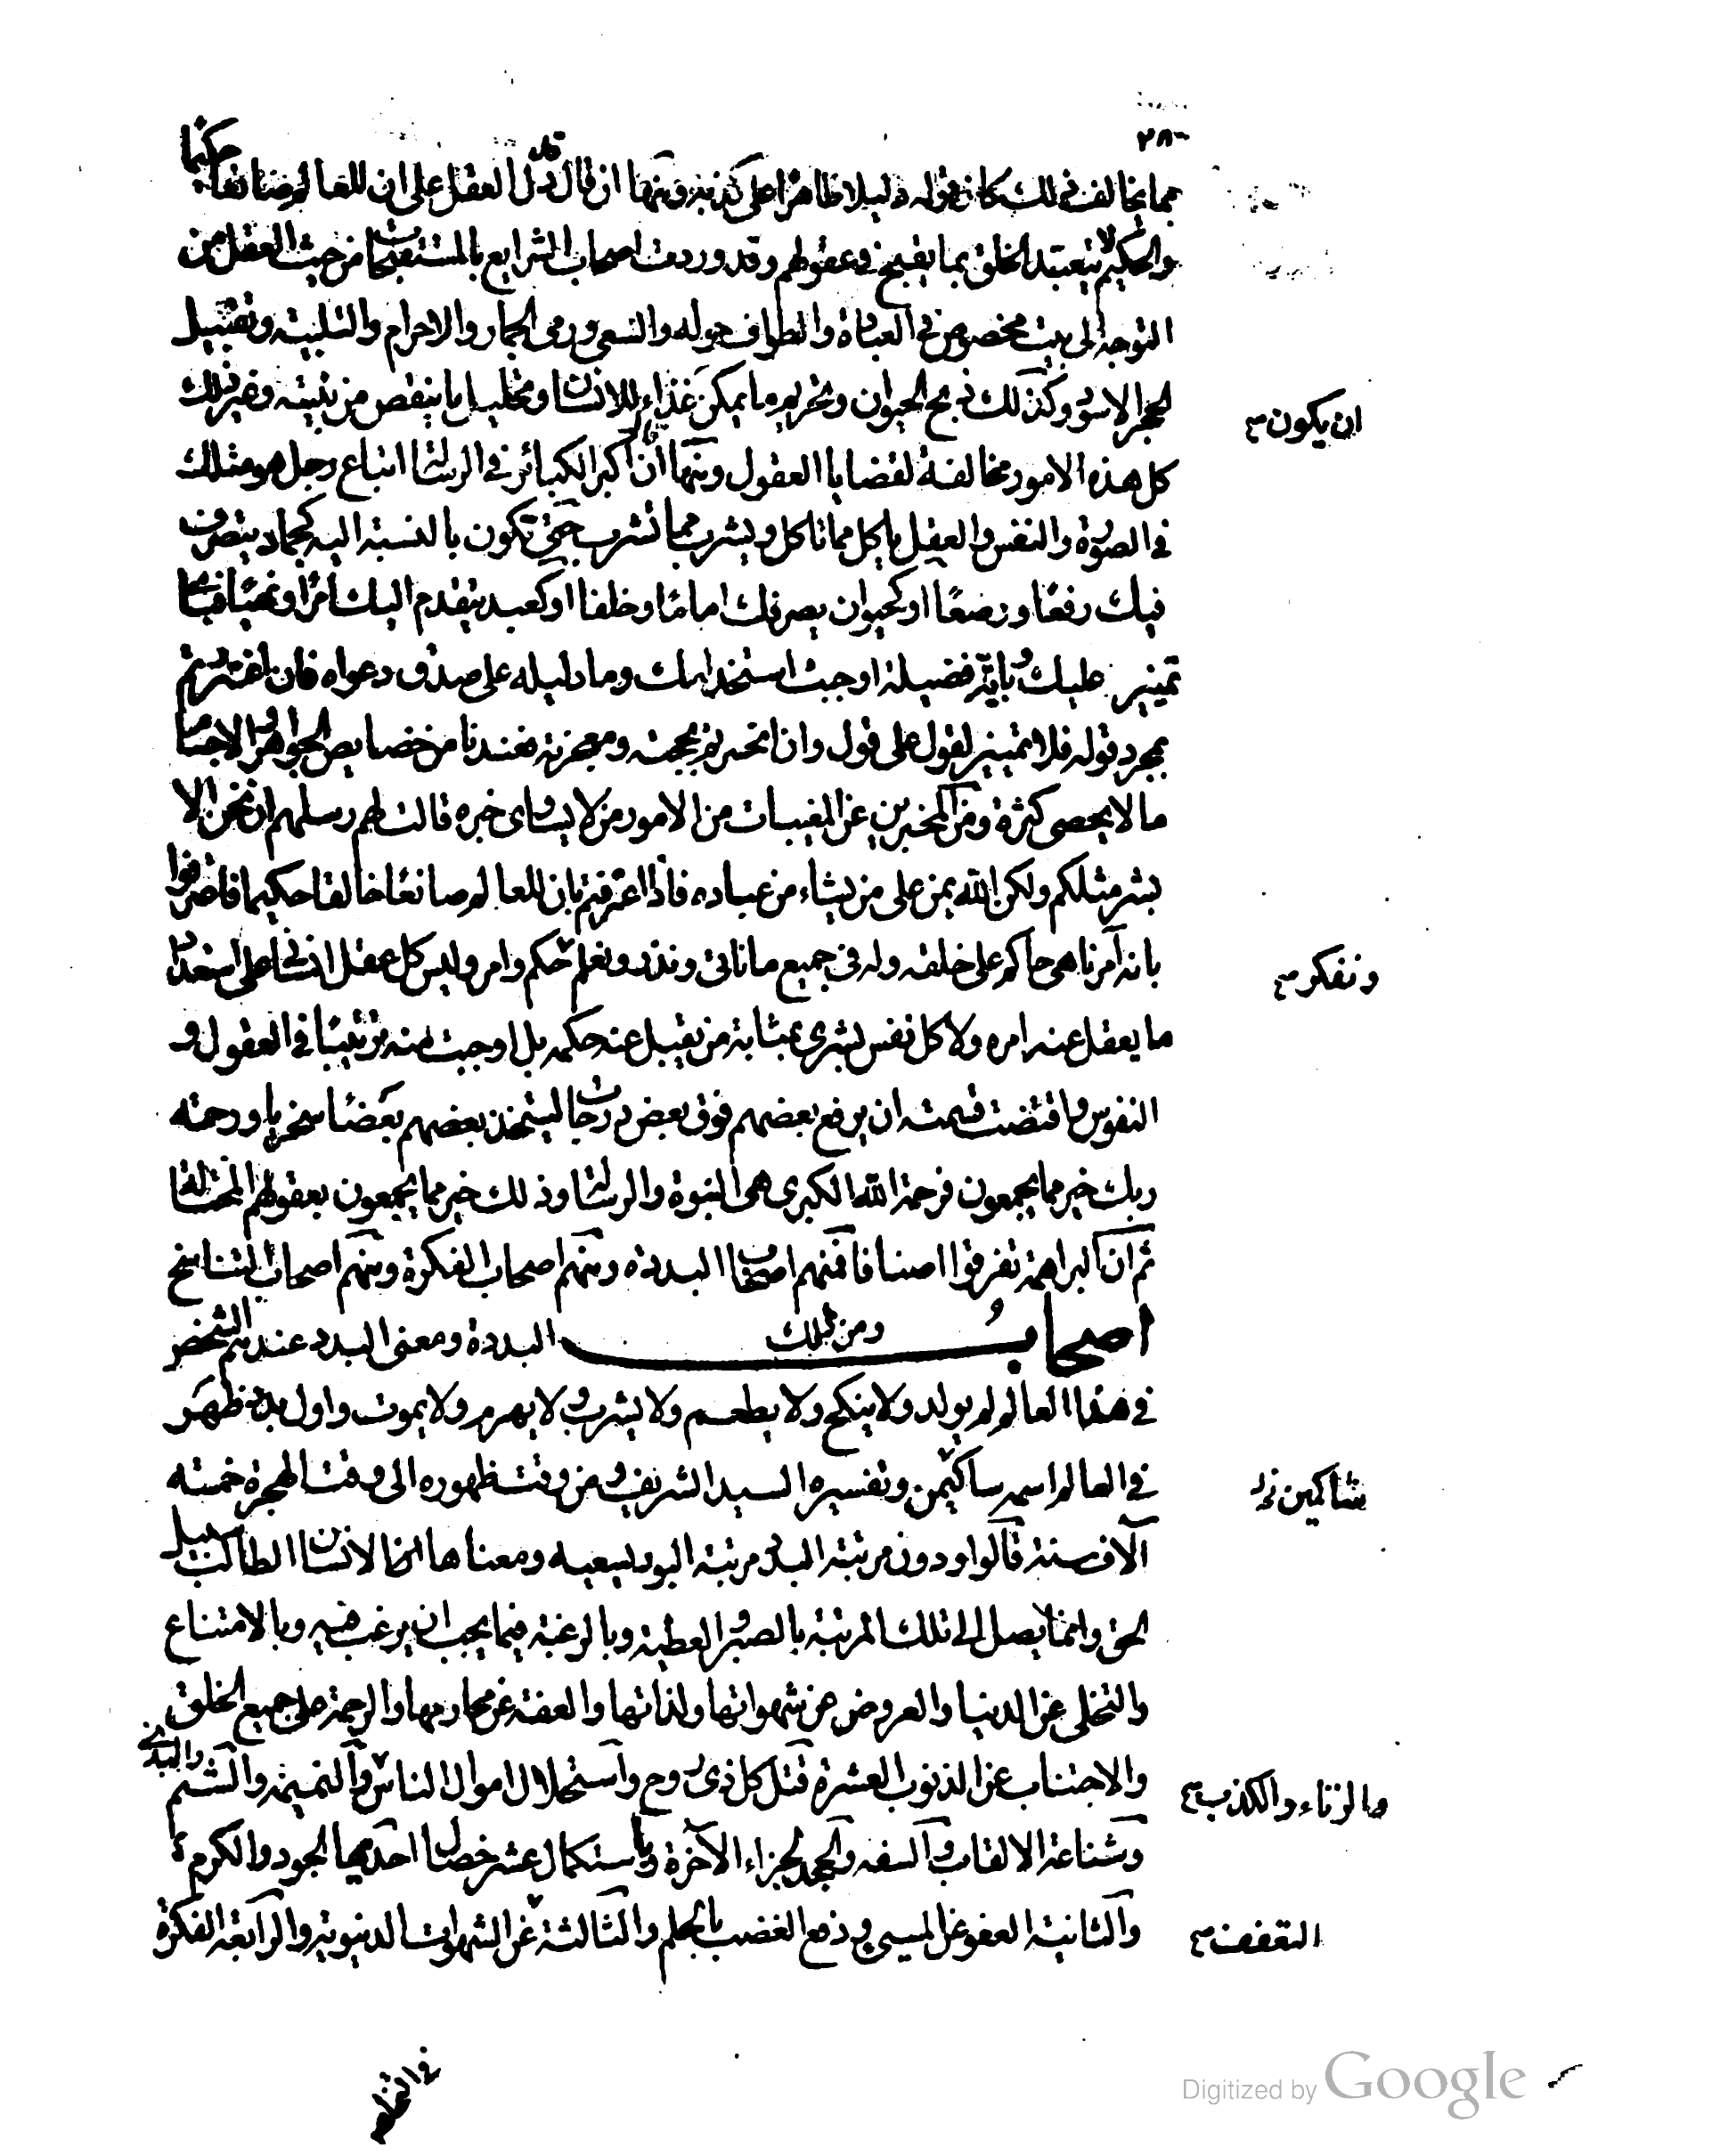 ٢٨٠
مما يخالف ذلك كان قوله دليلا ظاهرا على كذبه ومنها ان قال قد دل العقل على ان للعالم صانعا حكيما
والحكيم لا يتعبد الخلق بما يقبح في عقولهم وقد وردت اصحاب الشرايع بالمستقبحات من حيث العقل من
التوجه الى بيت مخصوص في العبادة والطواف حوله والسعى ورمى الجمار والاحرام والتلبيه وتقبيل
الحجر الاسود وكذلك ذبح الحيوان وتحريم ما يمكن غذاء للانسان وتحليل ما ينقص من بنيته وغير ذلك
ان يكون
كل هذه الامور مخالفة لقضايا العقول ومنها ان اكبر الكبائر في الرسالة اتباع رجل هو مثلك
في الصورة والنفس والعقل ياكل مما تاكل ويشرب مما تشرب حتى تكون بالنسبة اليه كجماد يتصرف
فيك رفعا ووضعا او كحيوان يصرفك اماما وخلفا او كعبد يتقدم اليك امرا ونهيا فباى
تميز عليك وباية فضيلة اوجبت استخدامك وما دليله على صدق دعواه فان اغتررتم
بمجرد قوله فلا تمييز لقول على قول وان انحسرتم بحجته ومعجزته فعندنا من خصايص الجواهر والاجسام
ما لا يحصى كثرة ومن المخبرين عن المغيبات من الامور من لا يساوى خبره قالت لهم رسلهم ان نحن الا
بشر مثلكم ولكن الله يمن على من يشاء من عباده فاذا اعترفتم بان للعالم صانعا خالقا حكيما فاعترفوا
بانه آمر ناهى حاكم على خلقه وله في جميع ما ناتى ونذر ونعلم حكم وامر وليس كل عقل انسانى على استعداد
ونفكر
ما يعقل عنه امره ولا كل نفس بشرى بمثابة من يقبل عنه حكمه بل اوجبت منه ترتيبا في العقول و
النفوس واقتضت قسمته ان يرفع بعضهم فوق بعض درجات ليتخذ بعضهم بعضا سخريا ورحمة
ربك خير مما يجمعون فرحمة الله الكبرى هى النبوة والرسالة وذلك خير مما يجمعون بعقولهم المختالة
ثم ان البراهمة تفرقوا اصنافا فمنهم اصحاب البددة ومنهم اصحاب الفكرة ومنهم اصحاب التناسخ
ومن ذلك اصحاب البددة ومعنى البدد عندهم الشخص
في هذا العالم لم يولد ولا ينكح ولا يطعم ولا يشرب ولا يهرم ولا يموت واول بد ظهر
في العالم اسمه ساكيمن وتفسيره السيد الشريف ومن وقت ظهوره الى وقت الهجرة خمسة
شاكمين
آلاف سنة قالوا ودون مرتبة البد مرتبة البود يسعيه ومعناها الانسان الطالب سبيل
الحق وانما يصل الى تلك المرتبة بالصبر والعطية وبالرغبة فيما يجب ان يرغب فيه وبالامتناع
والتخلى عن الدنيا والعروض عن شهواتها ولذاتها والعفة عن محارمها والرحمة على جميع الخلق
والاجتناب عن الذنوب العشرة قتل كل ذى روح واستحلال اموال الناس والنميمة والشتم والبذى
والزناء والكذب
وشناعة الالقاب والسفه والجحد لجزاء الآخرة وباستكمال عشر خصال احديها الجود والكرم
والثانية العفو عن المسيى ودفع الغضب بالحلم والثالثة عن الشهوات الدنيوية والرابعة الفكرة
التعفف
Digitized by Google